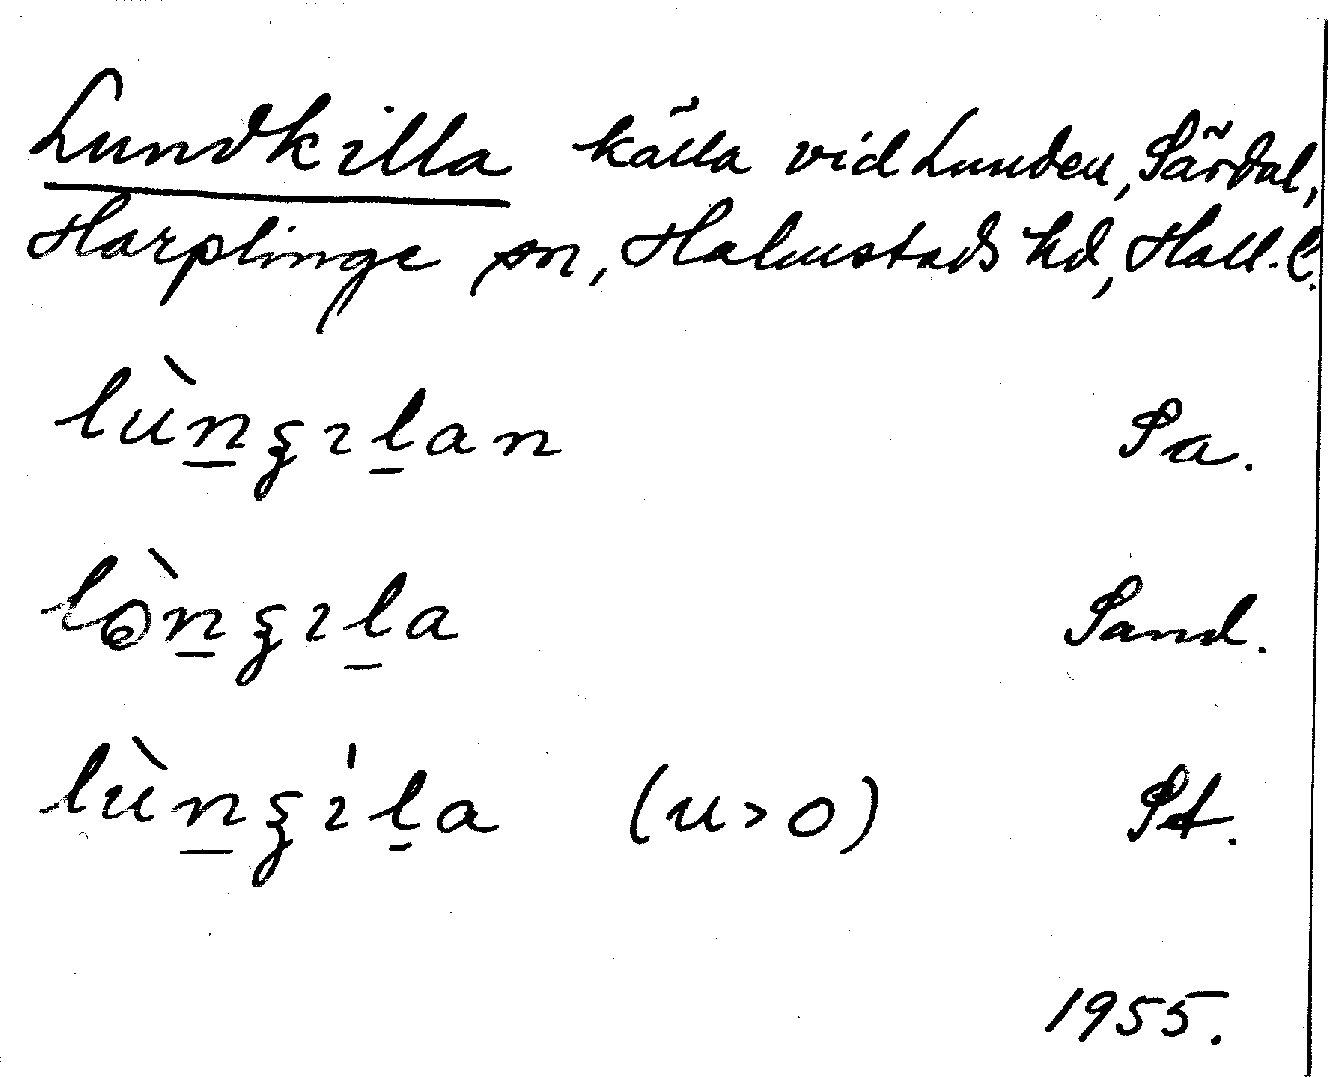 Lundkılla källa vid Lunden, Särdal,
Harplinge sn, Halmstads hd, Hall. l.
lùn̲ʒıl̲an Sa.
lòn̲ʒıl̲a Sand.
lùn̲ʒı̍l̲a (u>o) St.
1955.